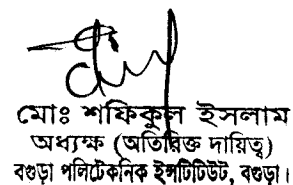 মোঃ শফিকুল ইসলাম
অধ্যক্ষ (অতিরিক্ত দায়িত্ব)
বগুড়া পলিটেকনিক ইন্সটিটিউট, বগুড়া।